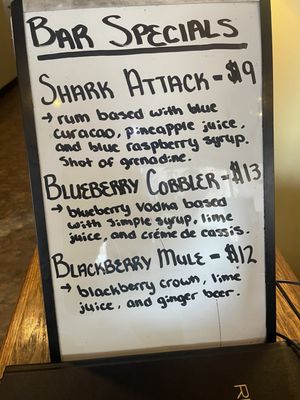 BAR SPECIALS
SHARK ATTACK - $9
→ rum based with blue
curacao, pineapple juice,
and blue raspberry syrup.
Shot of grenadine.
BLUEBERRY COBBLER - $13
→ blueberry vodka based
with simple syrup, lime
juice, and créme de cassis.
BLACKBERRY MULE = $12
→ blackberry crown, lime
juice, and ginger beer.
R